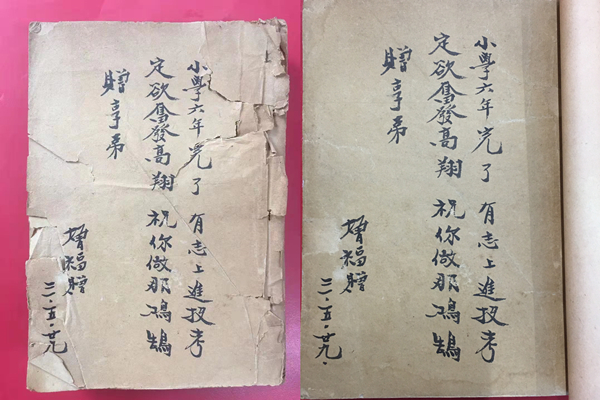 小學六年完了 有志上進投考
定欲奮發高翔 祝你做那鴻鵠
贈享弟
增福贈
三一·五·廿九
小學六年完了 有志上進投考
定欲奮發高翔 祝你做那鴻鵠
贈享弟
增福贈
三一·五·廿九·